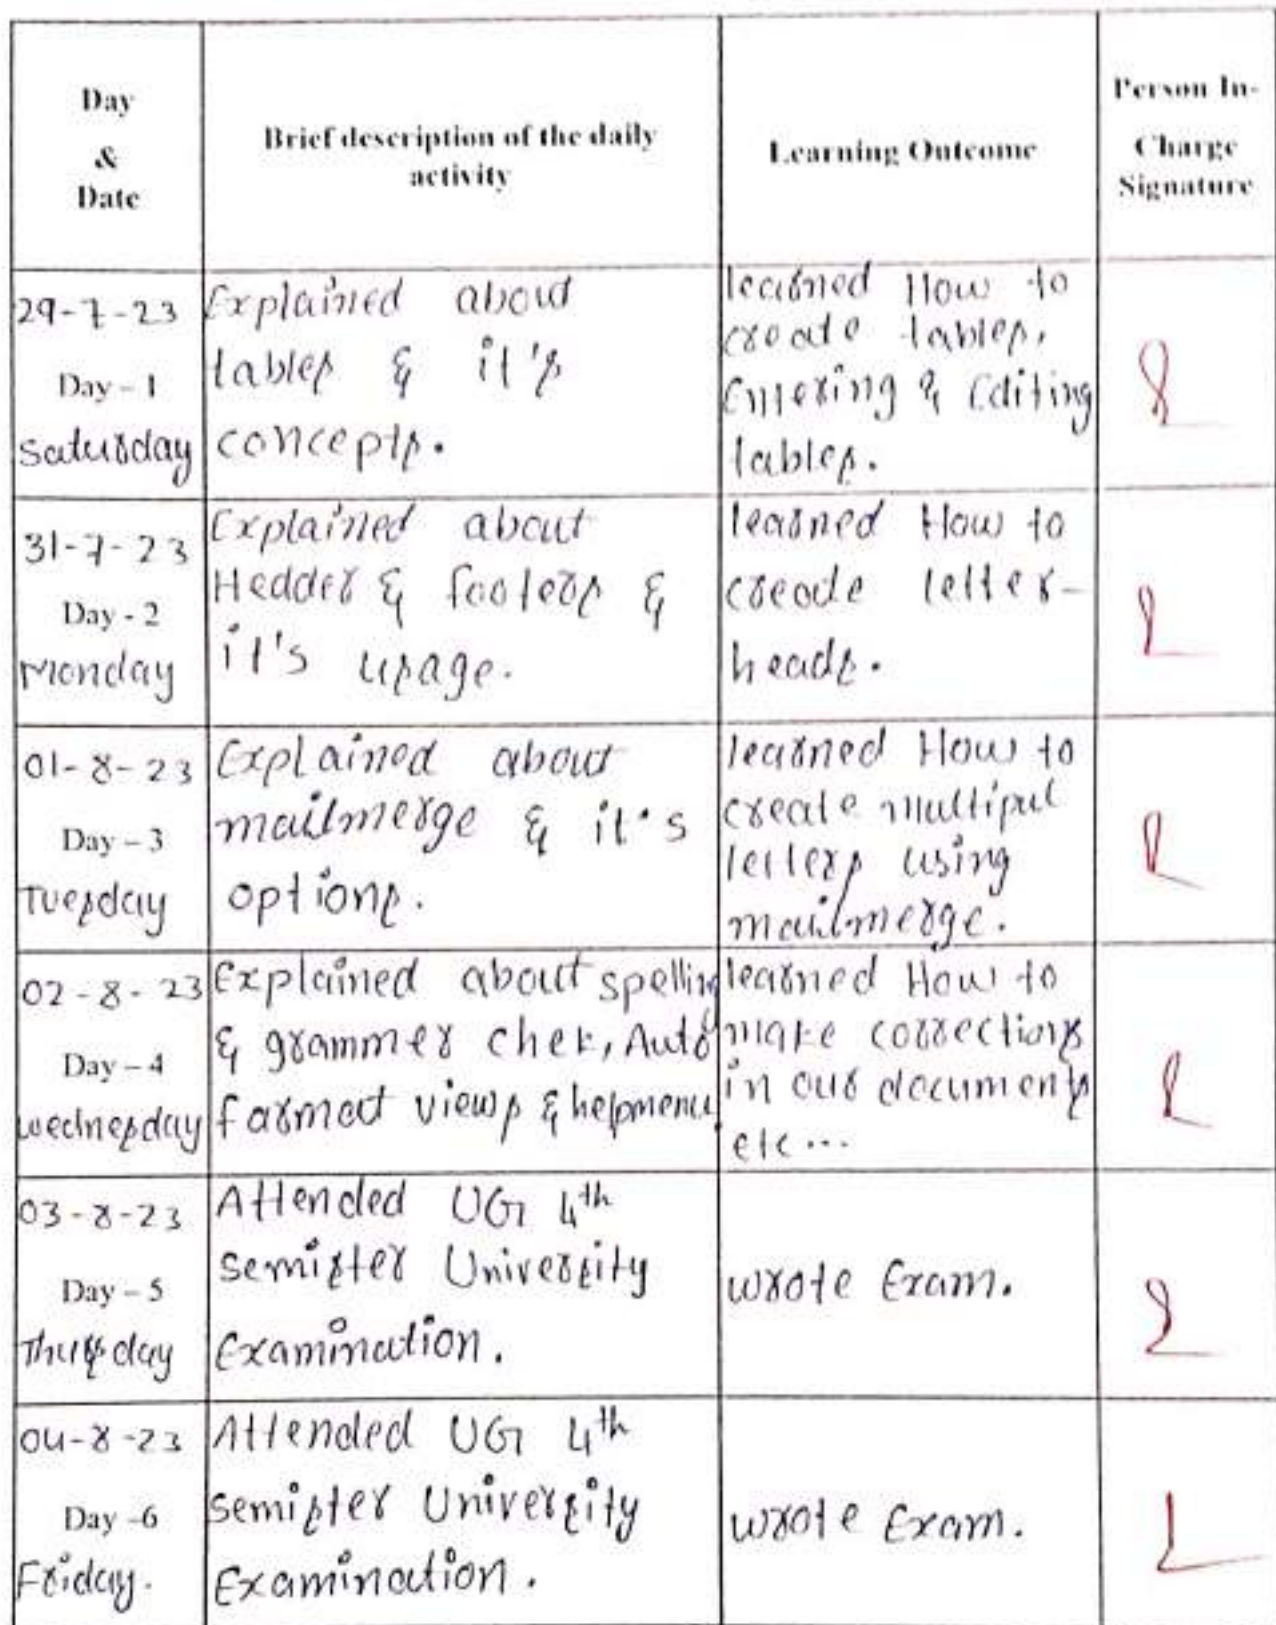 Day
&
Date
Brief description of the daily
activity
Learning Outcome
Person In-
Charge
Signature
29-7-23
Day – 1
Saturday
Explained about
tables & it's
concepts.
learned How to
create tables,
Entering & Editing
tables.
31-7-23
Day - 2
Monday
Explained about
Hedder & footers &
it's usage.
learned How to
create letter-
heads.
01-8-23
Day – 3
Tuesday
Explained about
mailmerge & it's
options.
learned How to
create multipul
letters using
mailmerge.
02-8-23
Day – 4
Wednesday
Explained about spelling
& grammer chek, Auto
farmat views & helpmenu
learned How to
make corrections
in our documents
etc...
03-8-23
Day – 5
Thursday
Attended UG 4th
semister University
Examination.
wrote Exam.
04-8-23
Day –6
Friday.
Attended UG 4th
semister University
Examination.
wrote Exam.